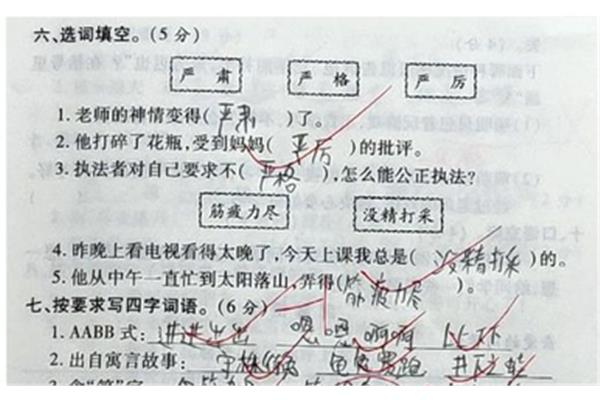 六、选词填空。(5分)
严肃 严格 严厉
1.老师的神情变得(严肃)了。
2.他打碎了花瓶,受到妈妈(严厉)的批评。
3.执法者对自己要求不(严格),怎么能公正执法?
筋疲力尽 没精打采
4.昨晚上看电视看得太晚了,今天上课我总是(没精打采)的。
5.他从中午一直忙到太阳落山,弄得(筋疲力尽)。
七、按要求写四字词语。(6分)
1.AABB式:进进出出
2.出自寓言故事:守株待兔 龟兔赛跑 井底之蛙